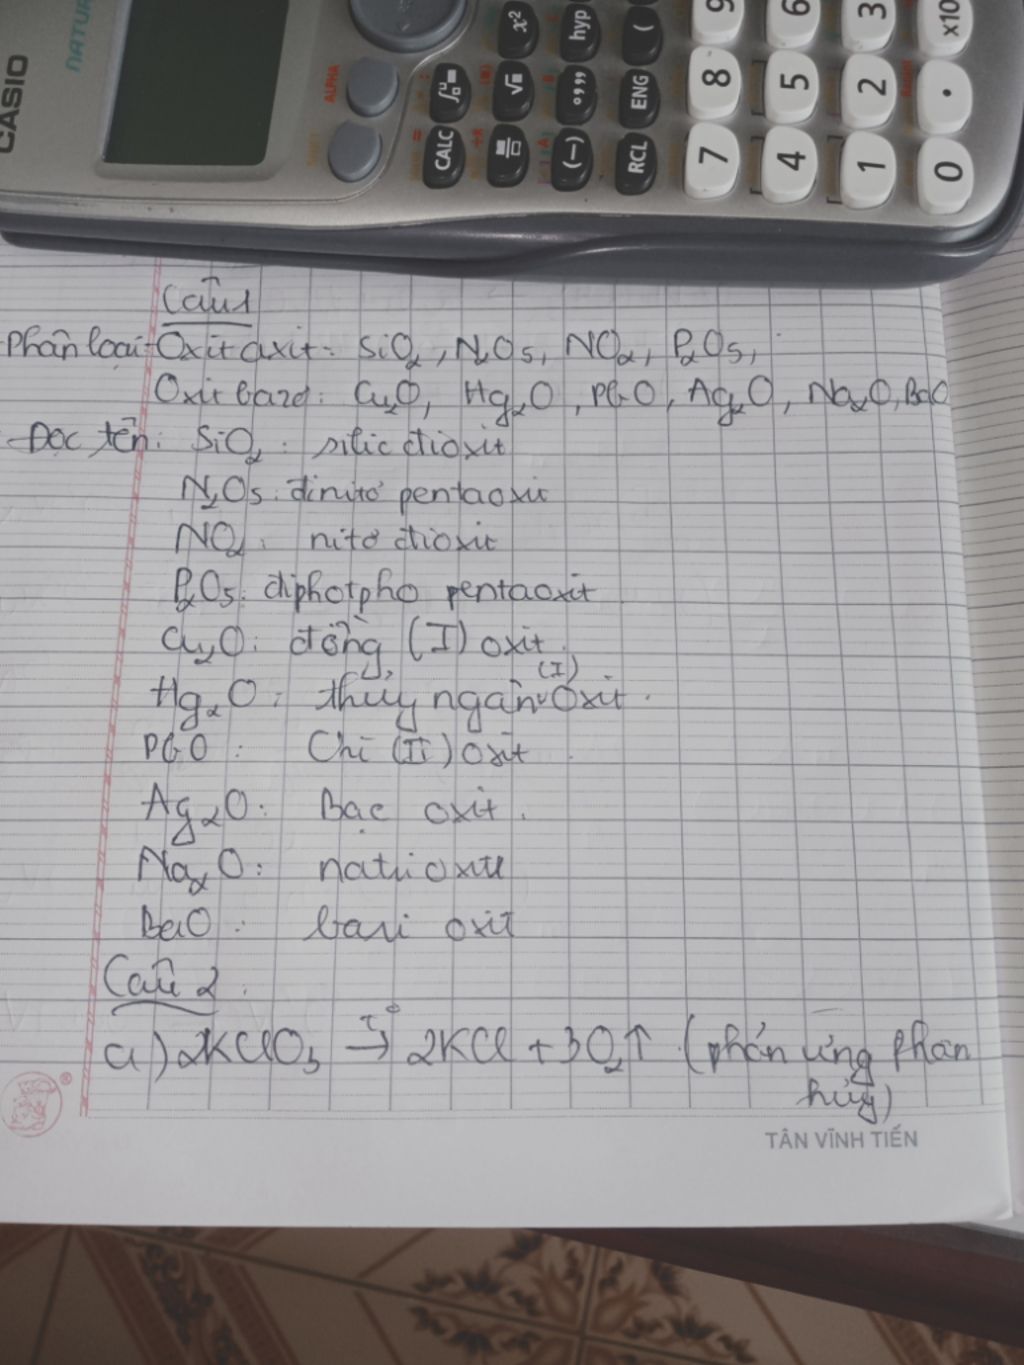 CASIO
NATUR
ALPHA
x²
hyp
(
9
6
3
x10
√
°'"
ENG
8
5
2
•
CALC
(−)
RCL
7
4
1
0
Câu1
Phân loại: Oxit axit: SiO2, N2O5, NO2, P2O5,
Oxit bazơ: Cu2O, Hg2O, PbO, Ag2O, Na2O, BaO
Đọc tên: SiO2: silic đioxit
N2O5: đinitơ pentaoxit
NO2: nitơ đioxit
P2O5: điphotpho pentaoxit
Cu2O: đồng (I) oxit.
Hg2O: thủy ngân (I) Oxit.
PbO: Chì (II) oxit.
Ag2O: Bạc oxit.
Na2O: natri oxit
BaO: bari oxit
Câu 2.
a) 2KClO3 t°→ 2KCl + 3O2↑ (phản ứng phân
hủy)
TÂN VĨNH TIẾN